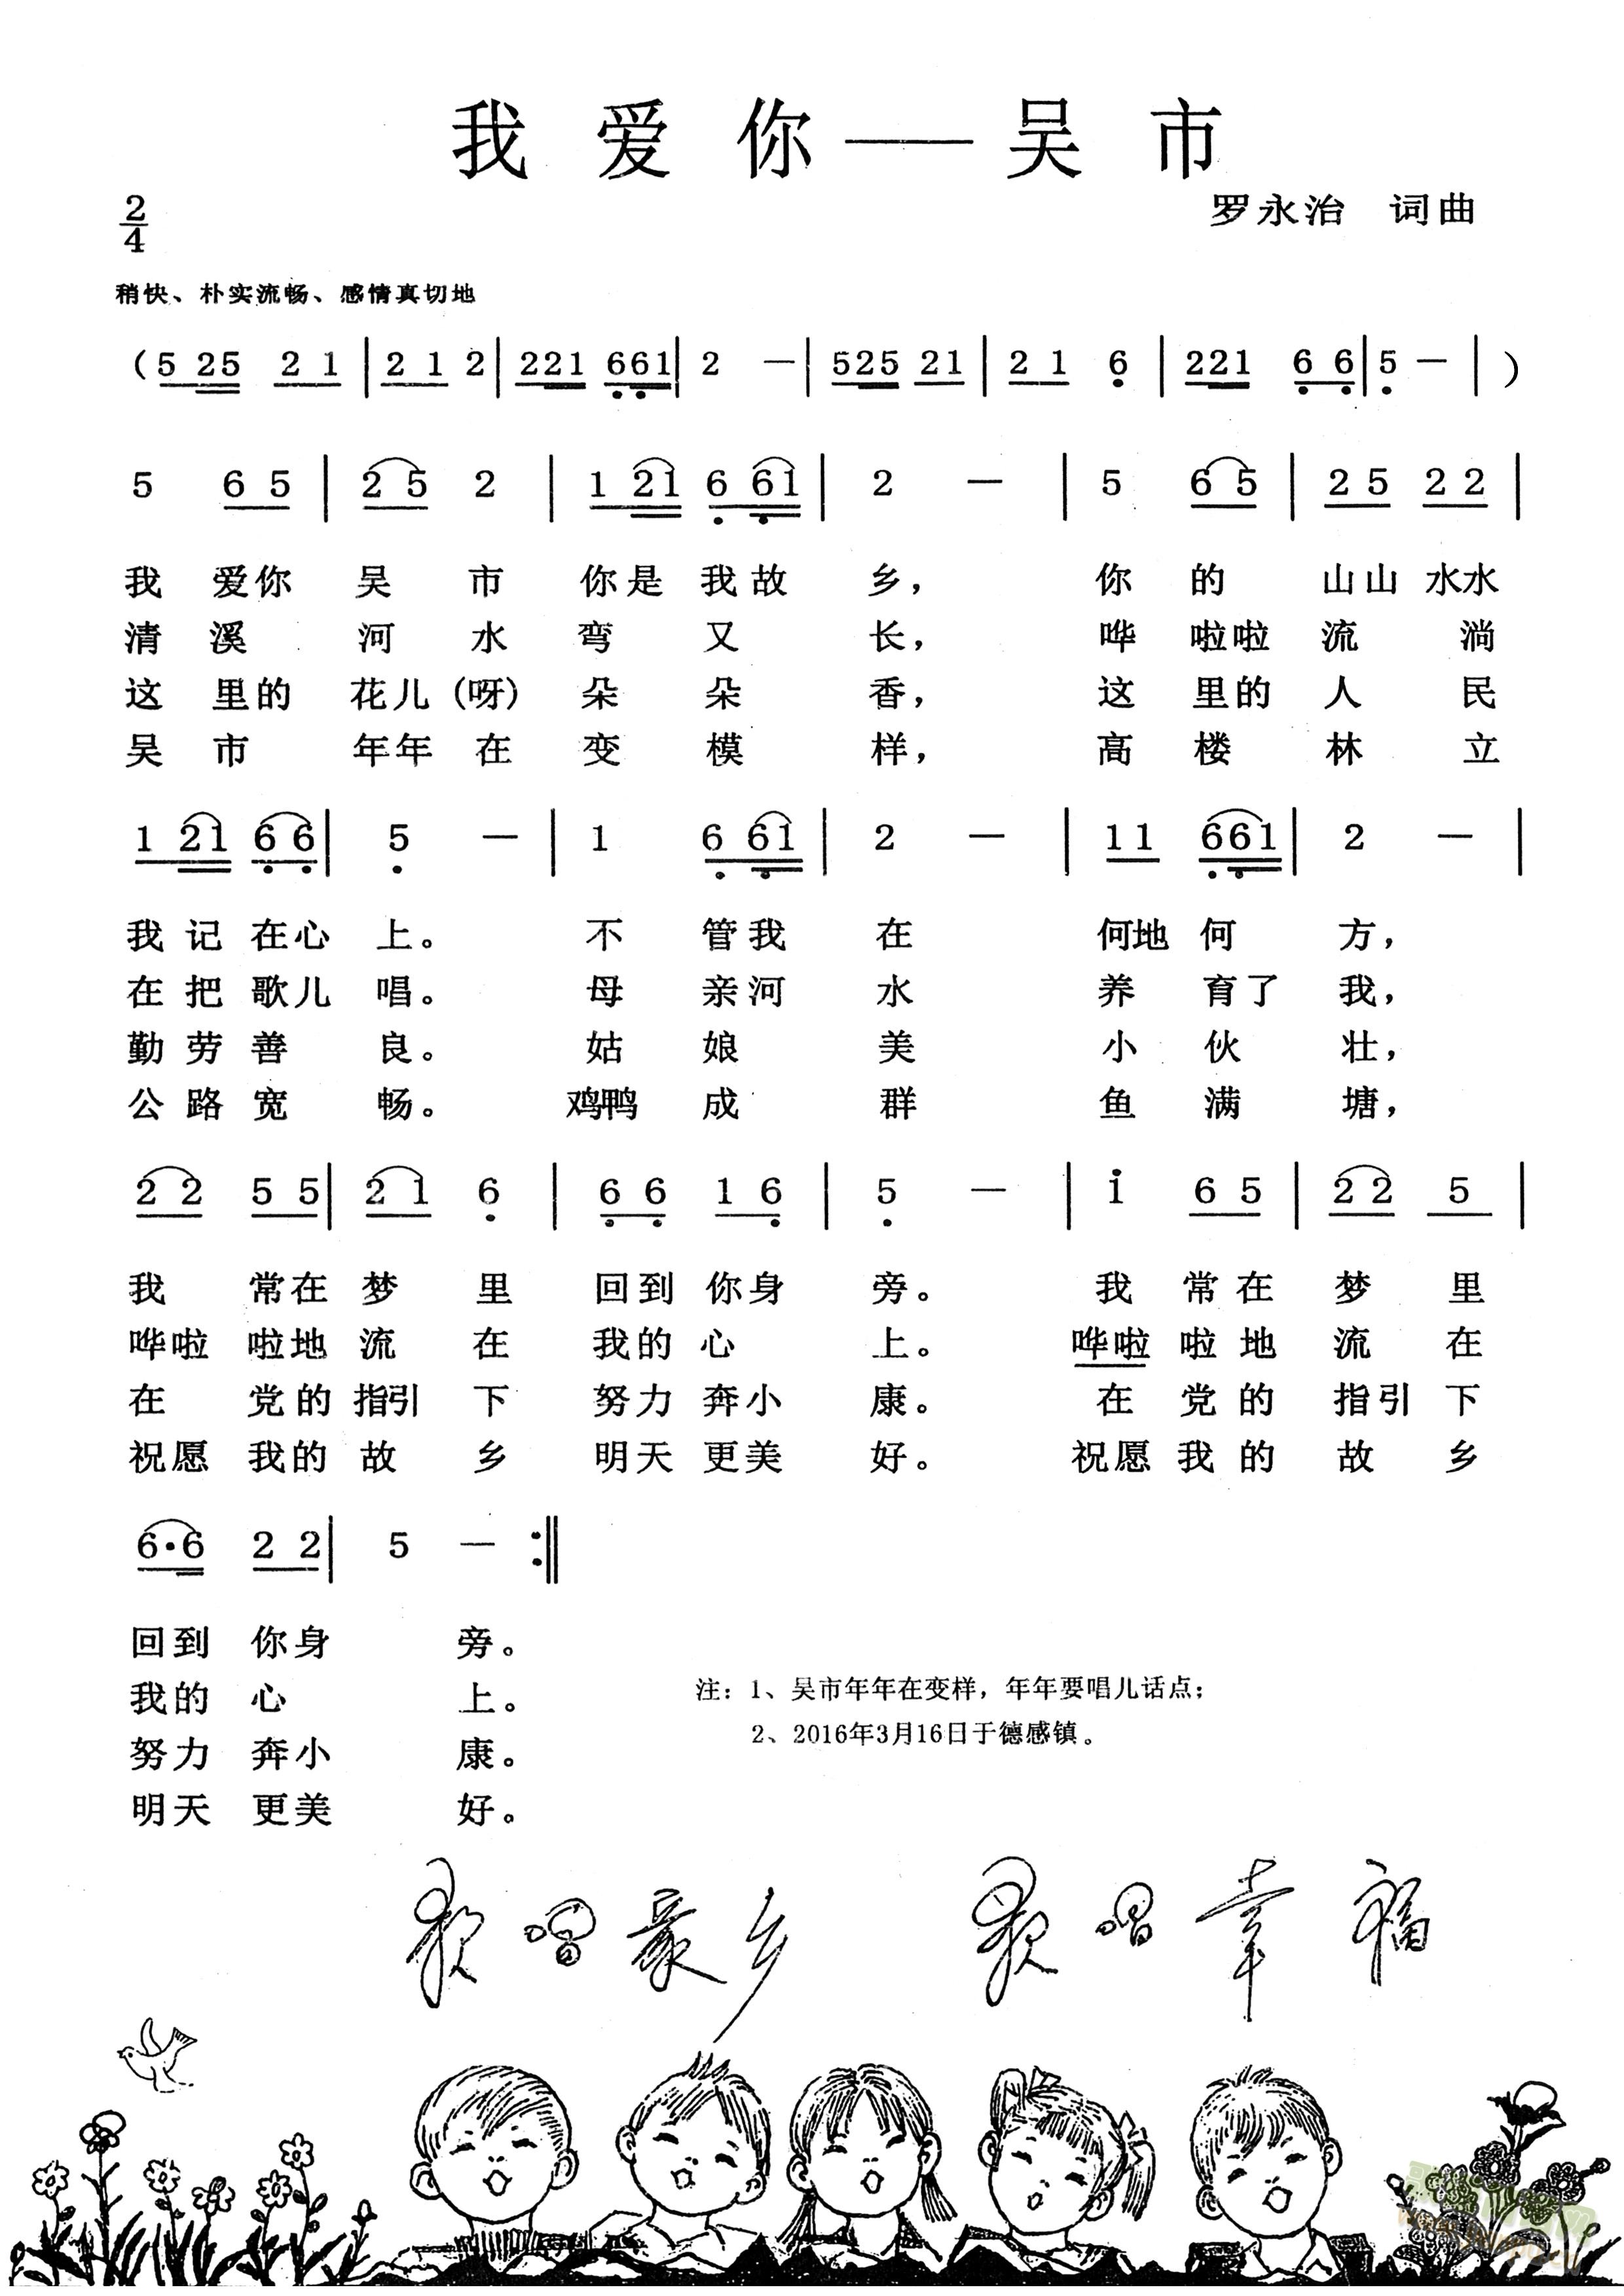 我爱你——吴市
2/4
罗永治 词曲
稍快、朴实流畅、感情真切地
（5 25 2 1 | 2 1 2 | 221 661 | 2 — | 525 21 | 2 1 6 | 221 6 6 | 5 — | ）
5 6 5 | 2 5 2 | 1 21 6 61 | 2 — | 5 6 5 | 2 5 2 2 |
我 爱你 吴 市 你是 我故 乡， 你 的 山山 水水
清 溪 河 水 弯 又 长， 哗 啦啦 流 淌
这 里的 花儿（呀） 朵 朵 香， 这 里的 人 民
吴 市 年年 在 变 模 样， 高 楼 林 立
1 21 6 6 | 5 — | 1 6 61 | 2 — | 11 661 | 2 — |
我 记 在心 上。 不 管我 在 何地 何 方，
在 把 歌儿 唱。 母 亲河 水 养 育了 我，
勤 劳 善 良。 姑 娘 美 小 伙 壮，
公 路 宽 畅。 鸡鸭 成 群 鱼 满 塘，
2 2 5 5 | 2 1 6 | 6 6 1 6 | 5 — | i 6 5 | 2 2 5 |
我 常在 梦 里 回到 你身 旁。 我 常在 梦 里
哗啦 啦地 流 在 我的 心 上。 哗啦 啦地 流 在
在 党的 指引 下 努力 奔小 康。 在 党的 指引 下
祝愿 我的 故 乡 明天 更美 好。 祝愿 我的 故 乡
6·6 2 2 | 5 — :‖
回到 你身 旁。
我的 心 上。
努力 奔小 康。
明天 更美 好。
注：1、吴市年年在变样，年年要唱儿话点；
2、2016年3月16日于德感镇。
歌唱家乡 歌唱幸福